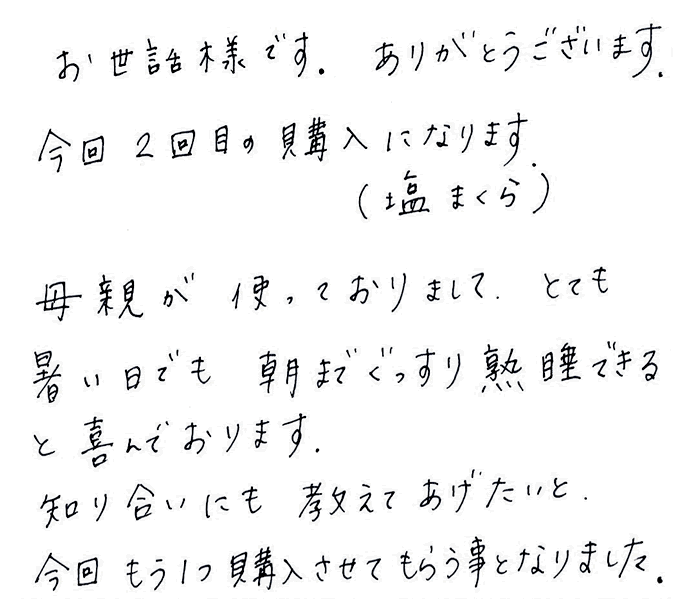 お世話様です. ありがとうございます.
今回 2回目の 購入になります.
(塩まくら)
母親が 使っておりまして. とても
暑い日でも 朝までぐっすり熟睡できる
と喜んでおります.
知り合いにも 教えてあげたいと.
今回 もう1つ購入させてもらう事となりました.